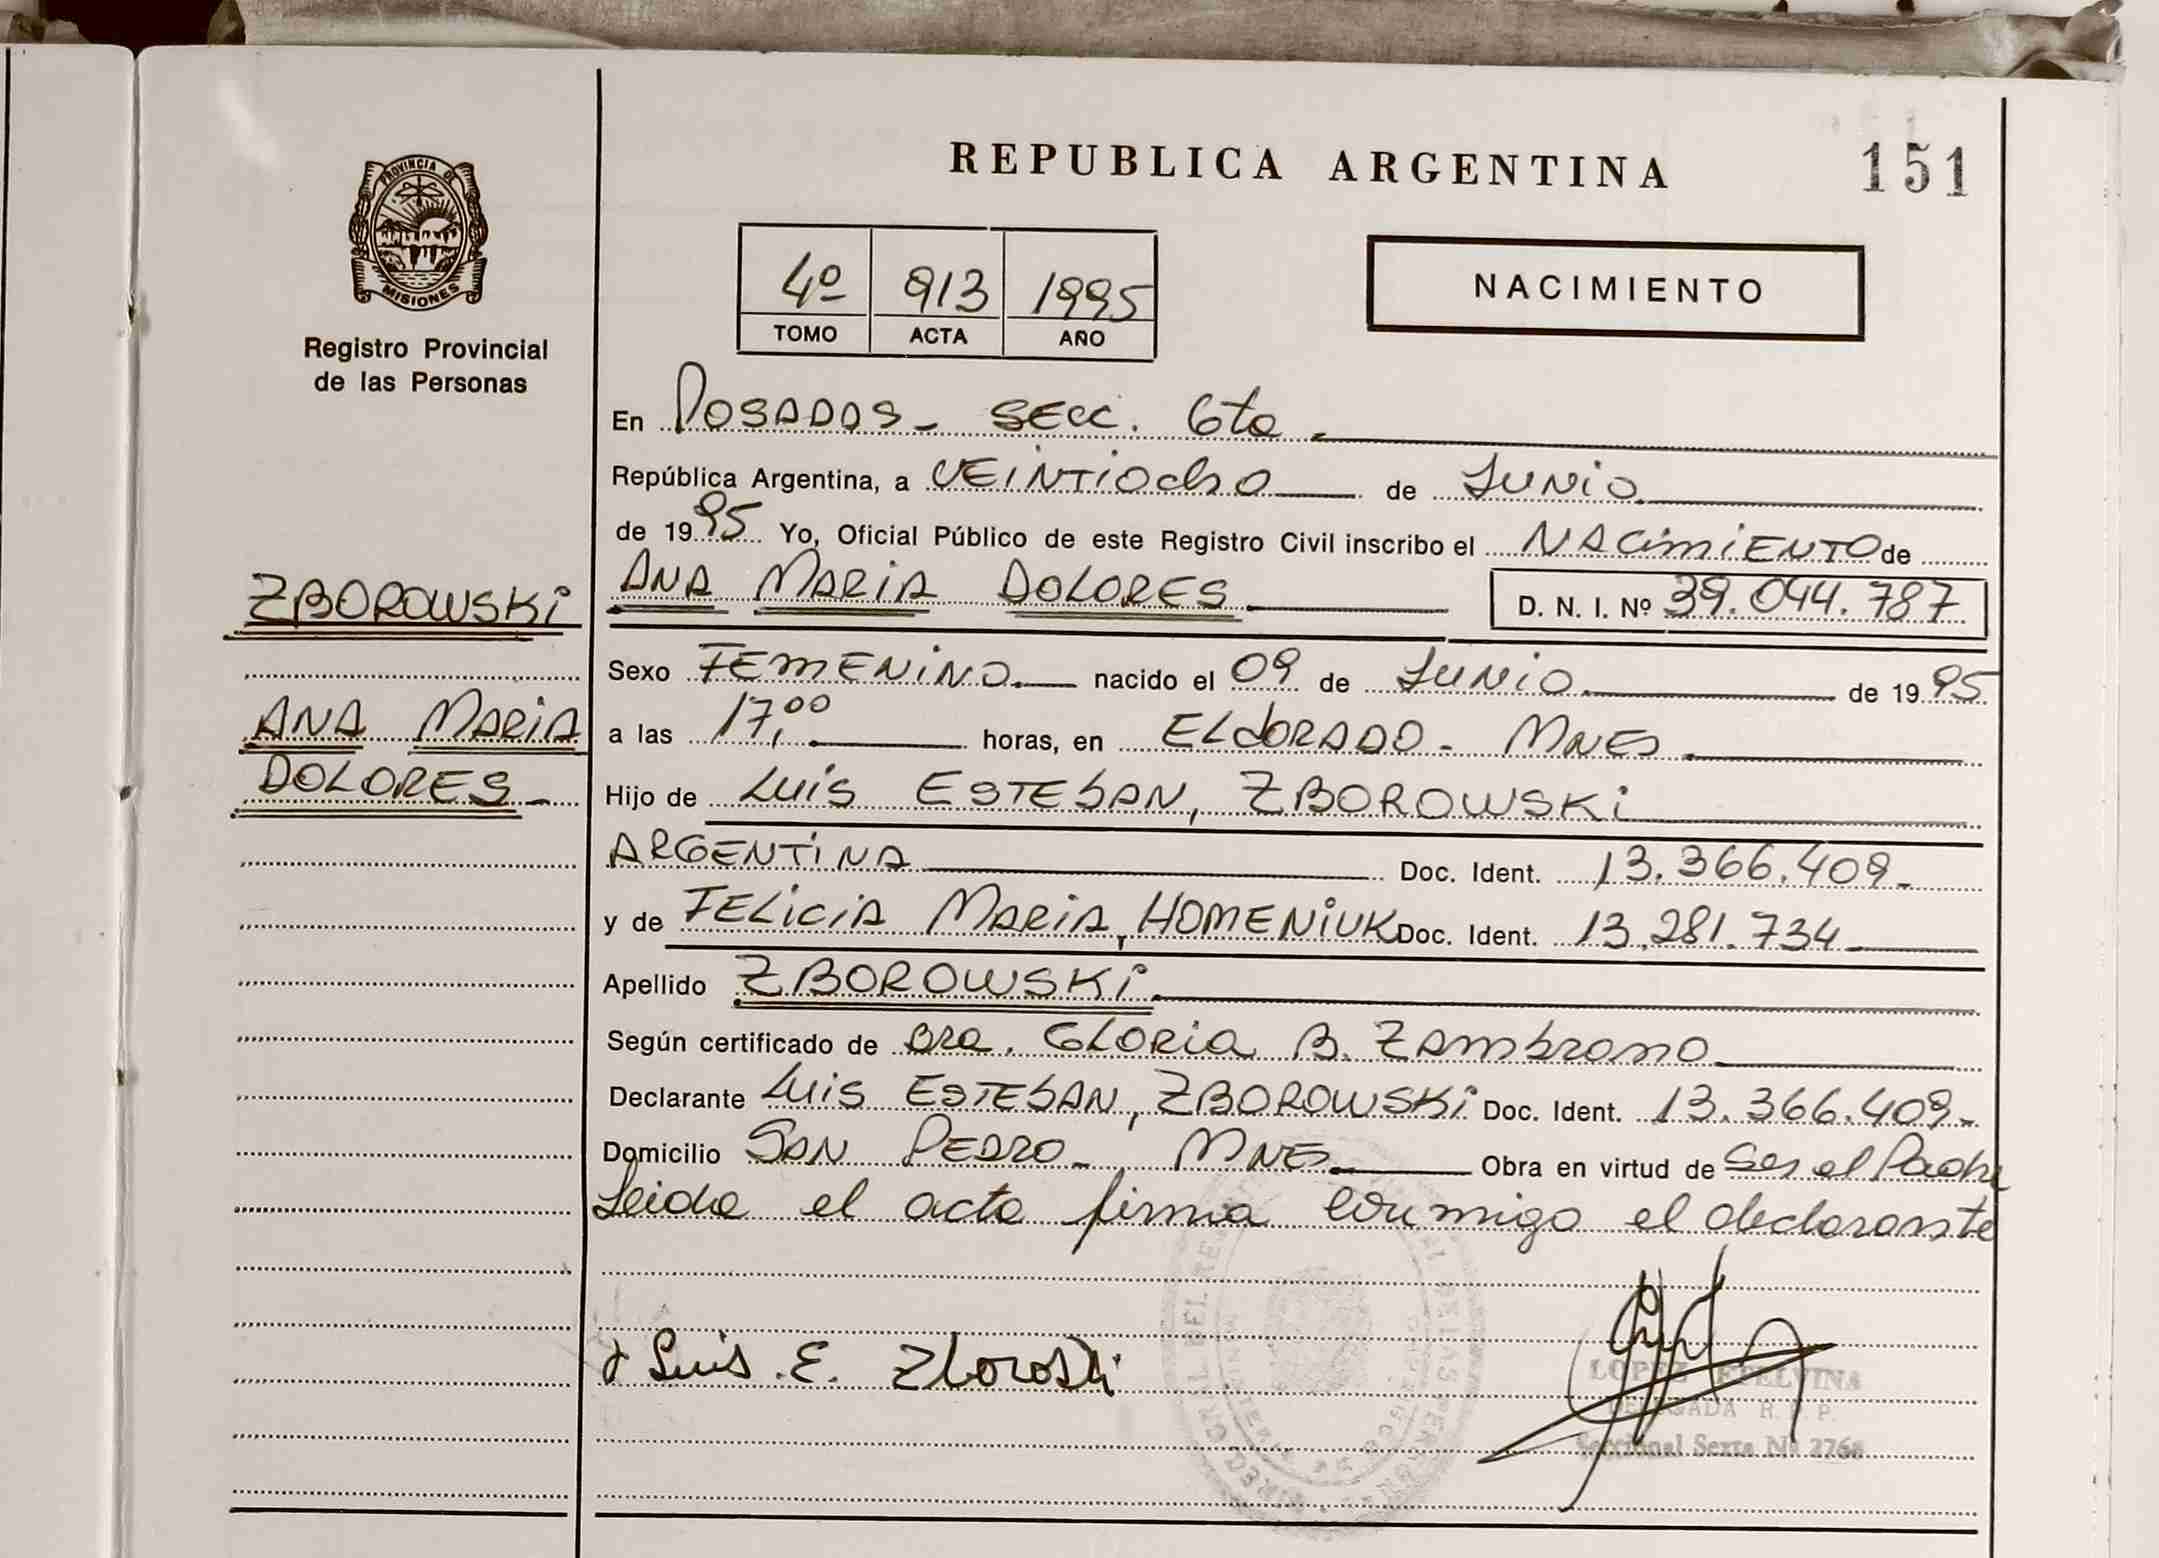 REPUBLICA ARGENTINA
151
PROVINCIA DE
MISIONES
Registro Provincial
de las Personas
4º 913 1995
TOMO ACTA AÑO
NACIMIENTO
En POSADAS - SECC. 6ta
República Argentina, a VEINTIOCHO de JUNIO
de 1995 Yo, Oficial Público de este Registro Civil inscribo el NACIMIENTO de
ZBOROWSKI
ANA MARIA DOLORES D. N. I. Nº 39.044.787
Sexo FEMENINO nacido el 09 de JUNIO de 1995
ANA MARIA
DOLORES -
a las 17,00 horas, en ELDORADO - MNES
Hijo de LUIS ESTEBAN, ZBOROWSKI
ARGENTINA Doc. Ident. 13.366.409 -
y de FELICIA MARIA, HOMENIUK Doc. Ident. 13.281.734
Apellido ZBOROWSKI
Según certificado de Dra. GLORIA B. ZAMBRANO
Declarante LUIS ESTEBAN, ZBOROWSKI Doc. Ident. 13.366.409 -
Domicilio SAN PEDRO - MNES Obra en virtud de Ser el Padre
Leida el acta firma conmigo el declarante
Luis. E. Zboroski
LOPEZ ETELVINA
DELEGADA R. P. P.
Seccional Sexta Nº 2768